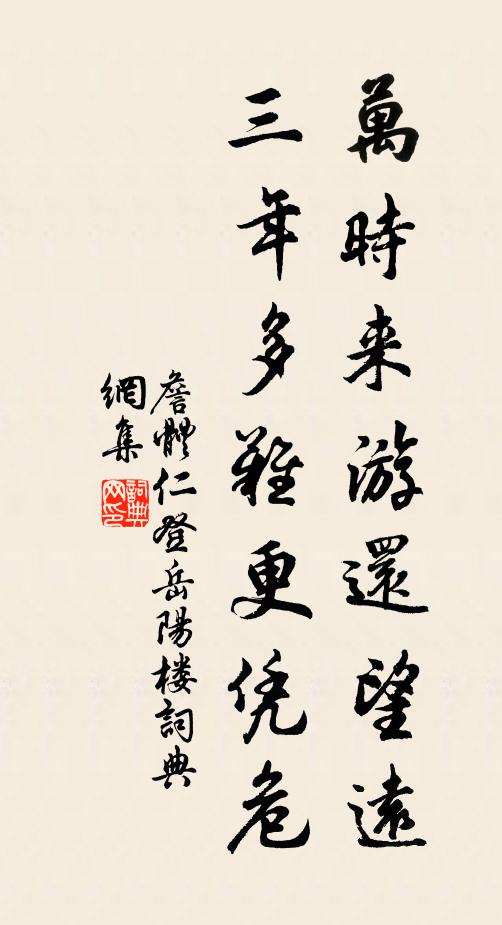 萬時来游還望遠
三年多難更凭危
詹體仁登岳陽楼詞典
網集
詞典网印